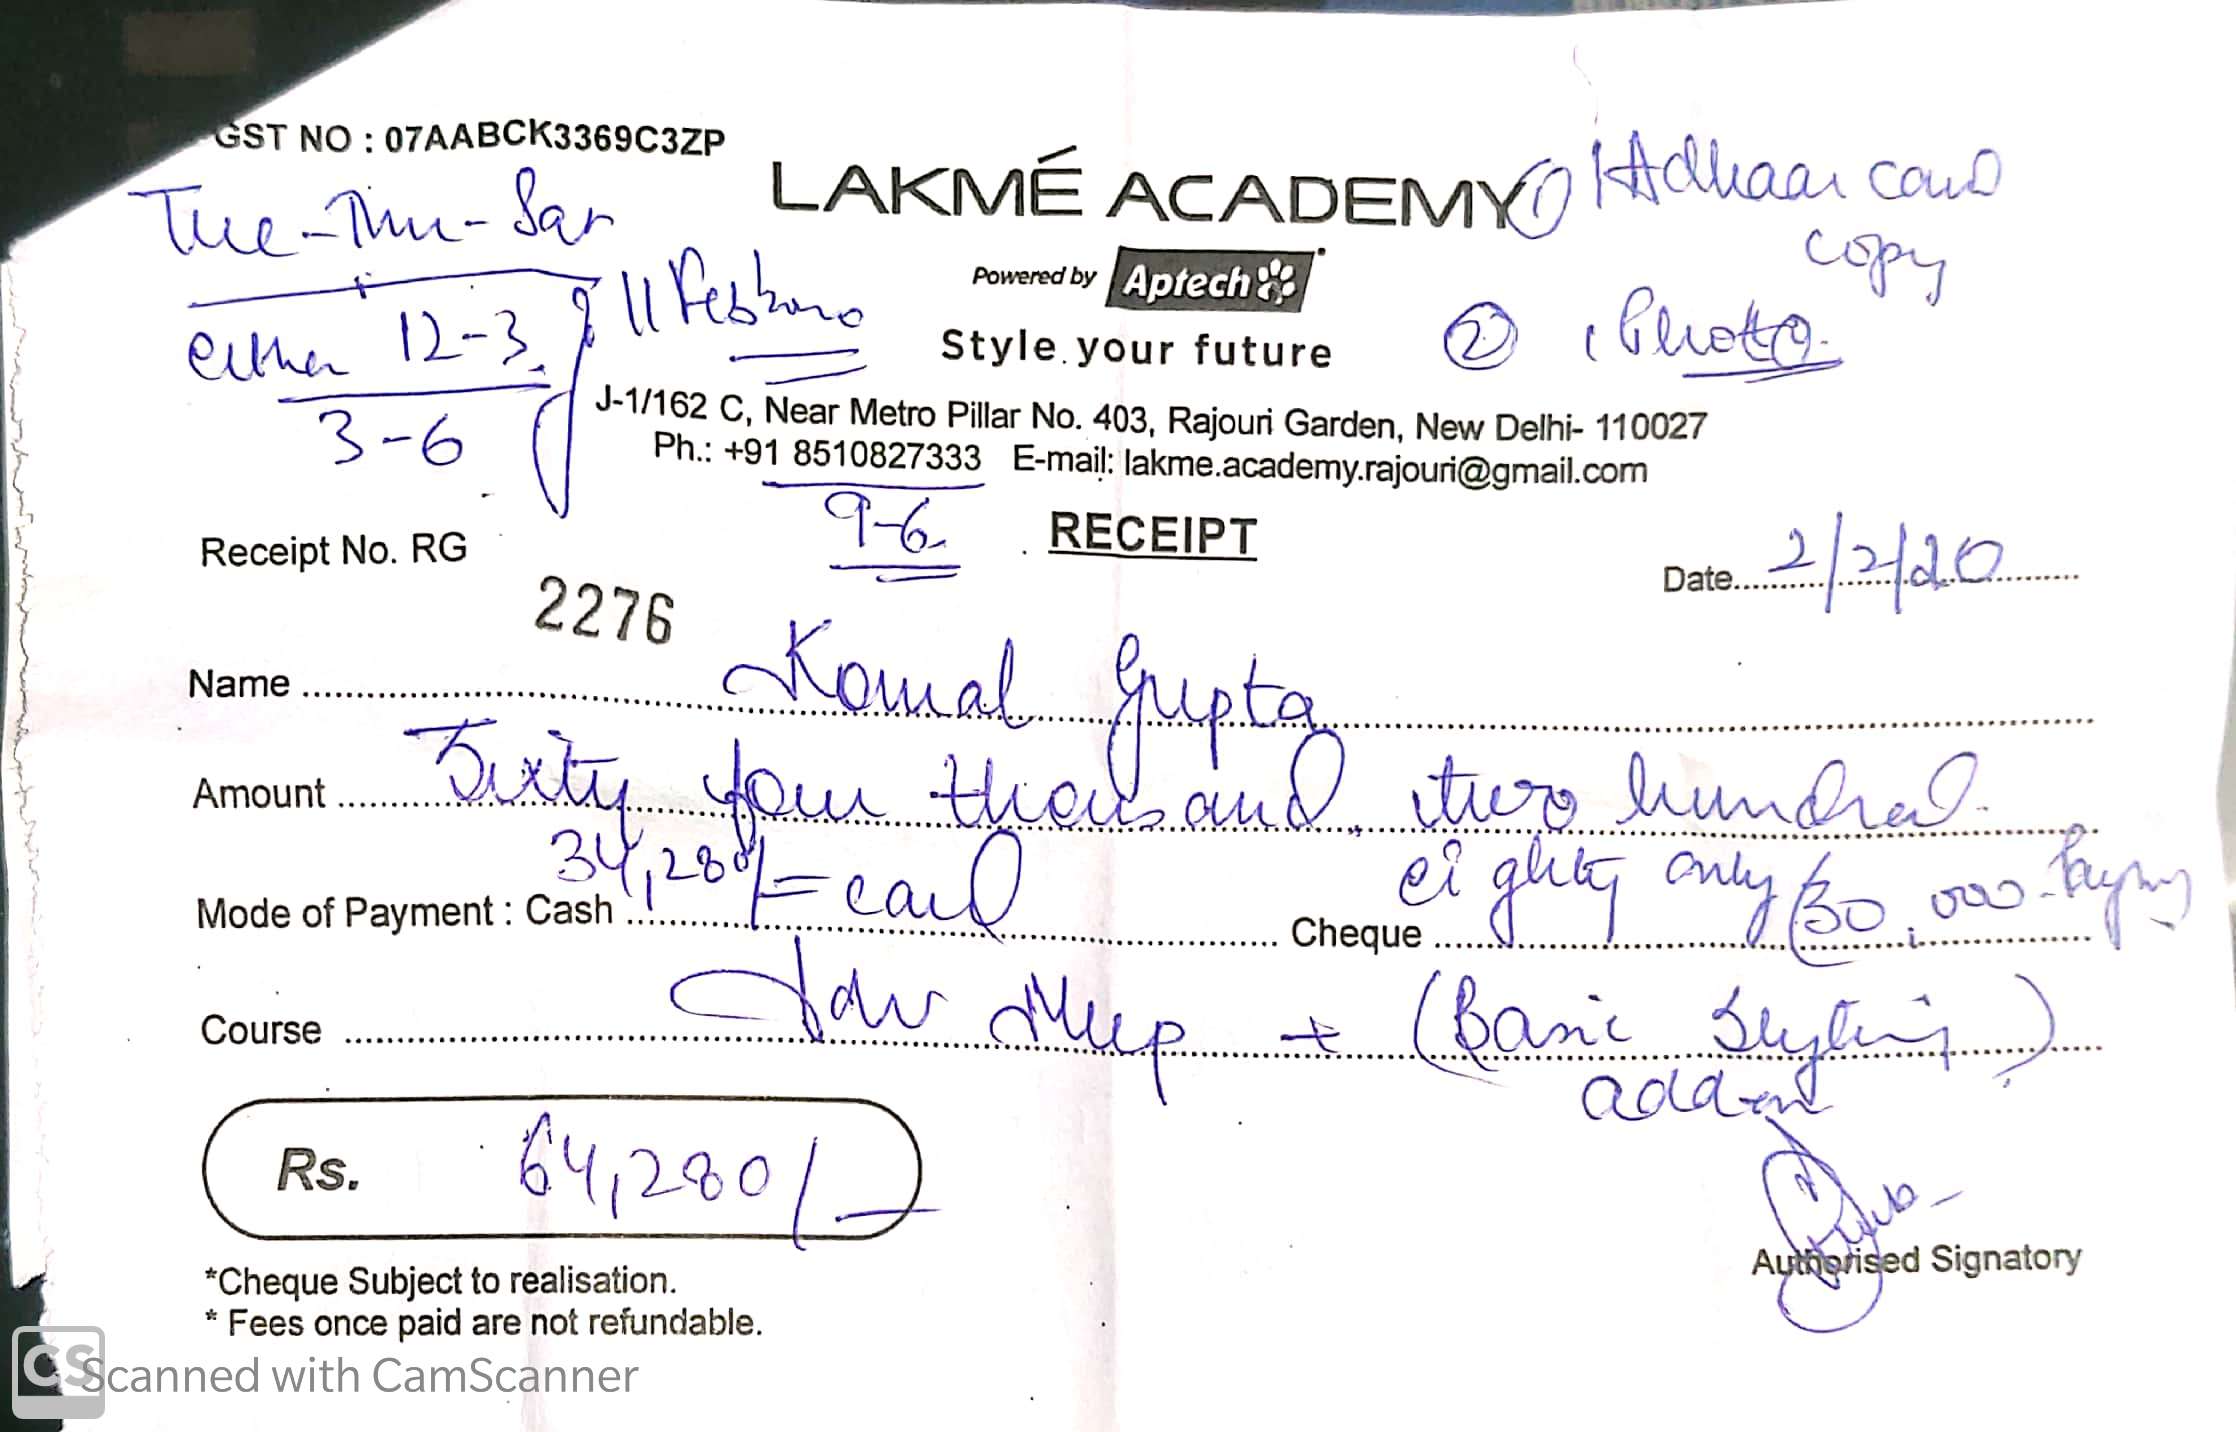 GST NO : 07AABCK3369C3ZP
LAKMÉ ACADEMY
① 1 Adhaar card
copy
Tue-Thu-Sat
Powered by Aptech
11 Feb
② 1 Photo
either 12-3
Style your future
3-6
J-1/162 C, Near Metro Pillar No. 403, Rajouri Garden, New Delhi- 110027
Ph.: +91 8510827333 E-mail: lakme.academy.rajouri@gmail.com
9-6
RECEIPT
Receipt No. RG
2276
Date 2/2/20
Name Komal Gupta
Amount Sixty four thousand, two hundred
eighty only
34,280/= card
Mode of Payment : Cash
Cheque 30,000
Course Adv + (Basic Styling)
add-on
Rs. 64,280/-
Authorised Signatory
*Cheque Subject to realisation.
* Fees once paid are not refundable.
CS Scanned with CamScanner